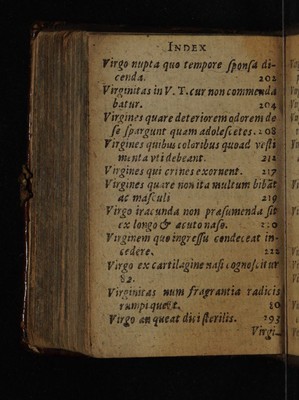 INDEX
Virgo nupta quo tempore sponsa di-
cenda. 202
Virginitas in V. T. cur non commenda
batur. 204
Virgines quare deteriorem odorem de
se spargunt quam adolescẽtes. 208
Virgines quibus coloribus quoad vesti
menta vti debeant. 212
Virgines qui crines exornent. 217
Virgines quare non ita multum bibãt
ac masculi 219
Virgo iracunda non præsumenda sit
ex longo & acuto naso. 220
Virginem quo ingressu condeceat in-
cedere. 222
Virgo ex cartilagine nasi cognoscitur
82.
Virginitas num fragrantia radicis
rumpi queat. 80
Virgo an queat dici sterilis. 293
Virgi-